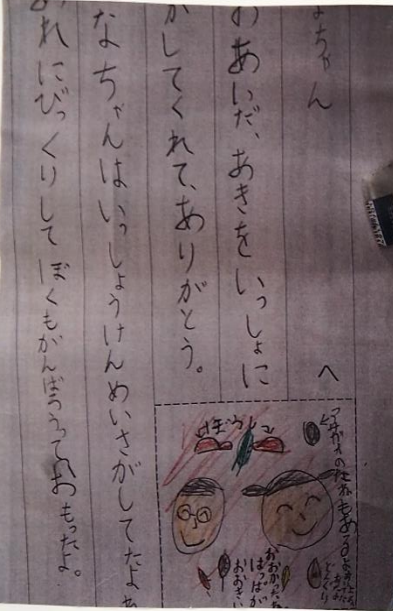 ちゃん
へ
おあいだ、あきをいっしょに
がしてくれて、ありがとう。
なちゃんはいっしょうけんめいさがしてたよ
れにびっくりしてぼくもがんばろうっておもったよ。
ぼうし
もあるよ
おおかった
はっぱが
おおきい
どんぐり